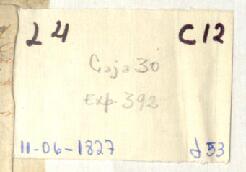 L4 C12
Caja 30
Exp 392
11-06-1827 d 53